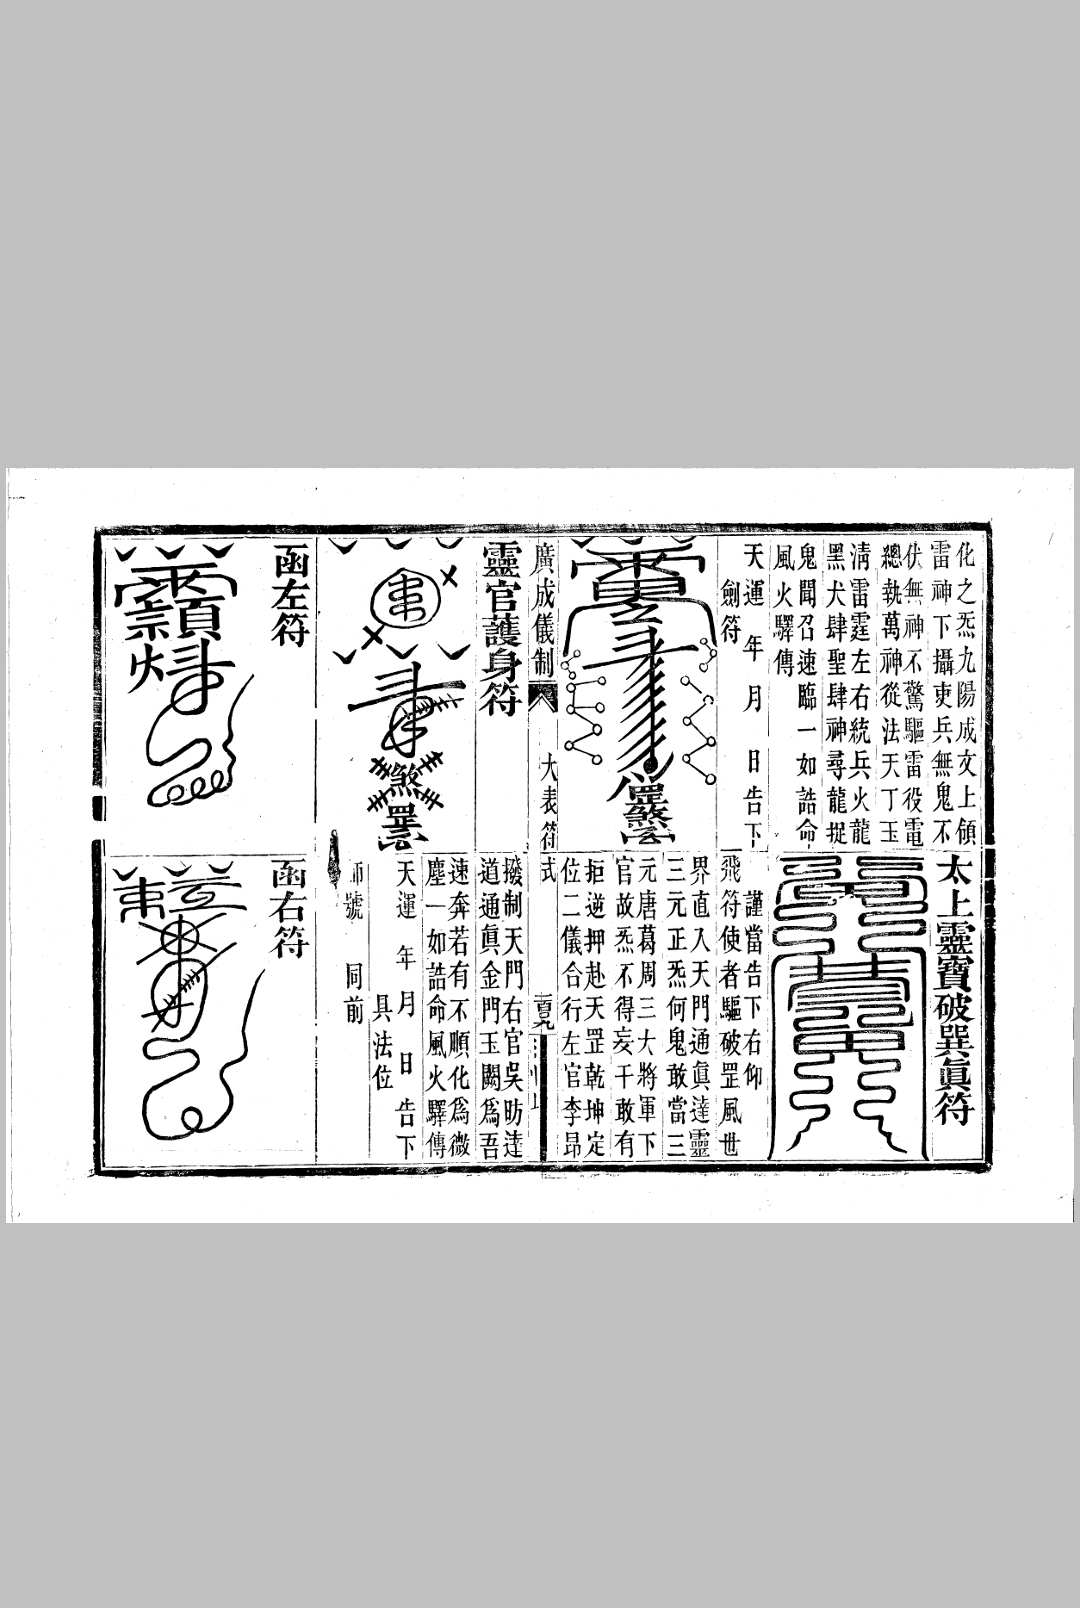 化之炁九陽成文上領
雷神下攝吏兵無鬼不
伏無神不驚驅雷役電
總執萬神從法天丁玉
淸雷霆左右統兵火龍
黑犬肆聖肆神尋龍捉
鬼聞召速臨一如誥命
風火驛傳
天運年月日告下
劍符
太上靈寶破巽眞符
謹當告下右仰
飛符使者驅破罡風世
界直入天門通眞達靈
三元正炁何鬼敢當三
元唐葛周三大將軍下
官故炁不得妄干敢有
拒逆押赴天罡乾坤定
位二儀合行左官李昂
廣成儀制
大表符式
百九
靈官護身符
煞
罡
撥制天門右官吳昉達
道通眞金門玉闕爲吾
速奔若有不順化爲微
塵一如誥命風火驛傳
天運年月日告下
具法位
師號同前
函左符
函右符